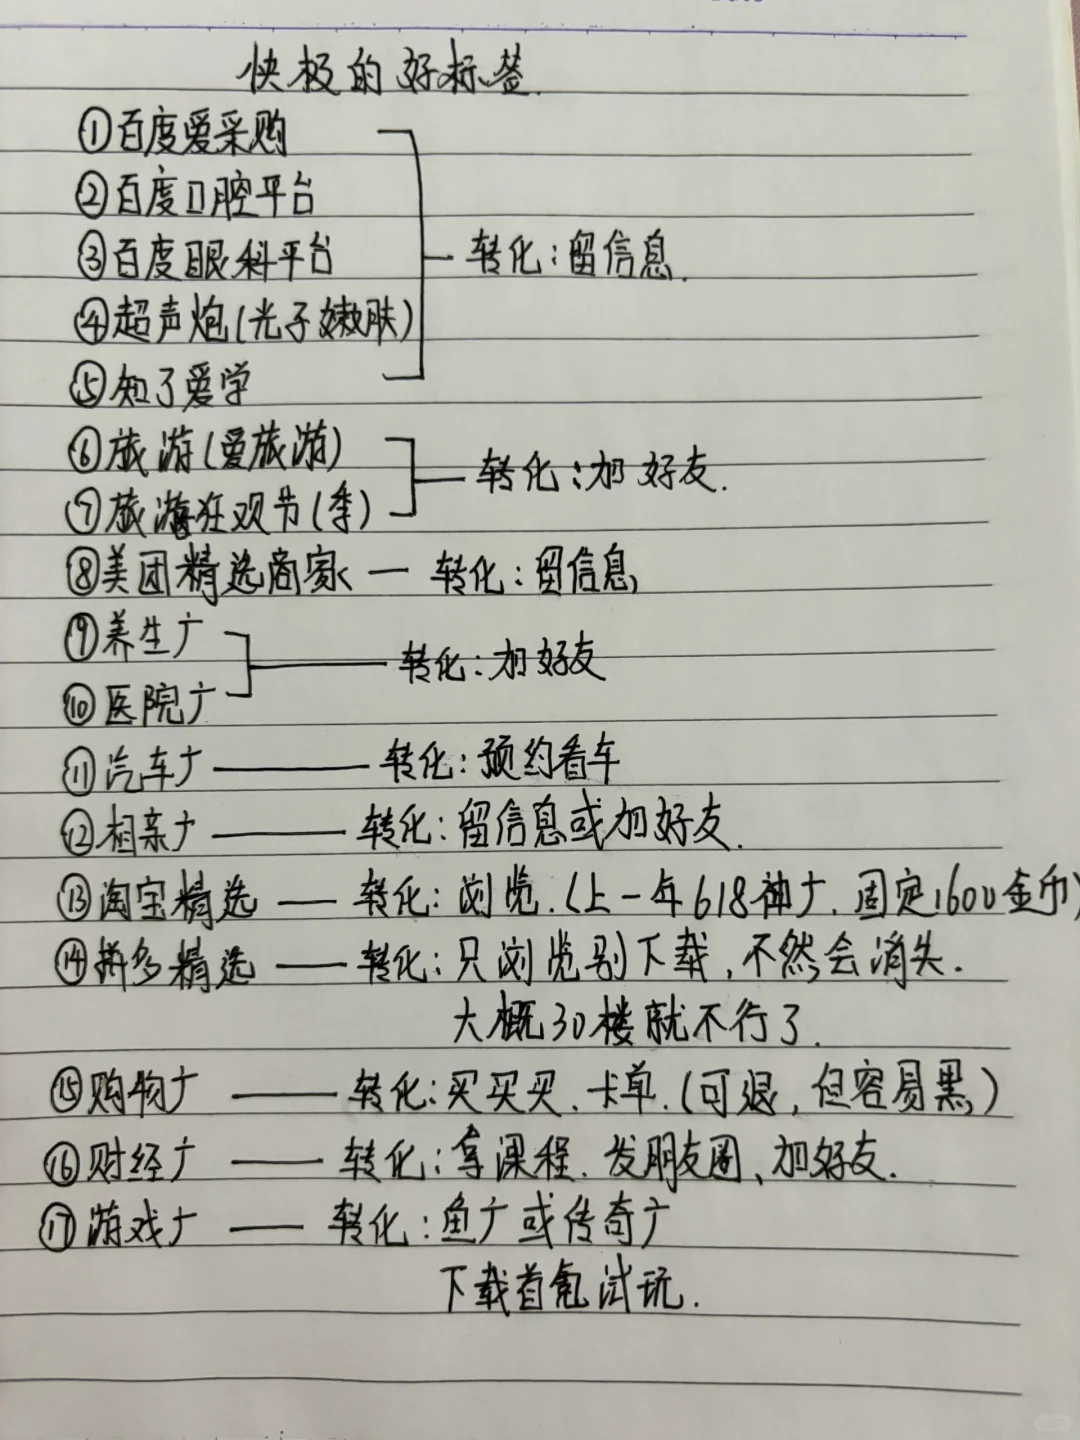 快极的好标签.
①百度爱采购
②百度口腔平台
③百度眼科平台 转化:留信息.
④超声炮(光子嫩肤)
⑤知了爱学
⑥旅游(爱旅游) 转化:加好友.
⑦旅游狂观节(季)
⑧美团精选商家 — 转化:留信息,
⑨养生广 转化:加好友
⑩医院广
⑪汽车广 —— 转化:预约看车
⑫相亲广 —— 转化:留信息或加好友.
⑬淘宝精选 — 转化:浏览.(上一年618神广.固定1600金币)
⑭拼多精选 — 转化:只浏览别下载,不然会消失.
大概30楼就不行了.
⑮购物广 —— 转化:买买买、卡单.(可退,但容易黑)
⑯财经广 —— 转化:拿课程.发朋友圈、加好友.
⑰游戏广 — 转化:鱼广或传奇广
下载首氪试玩.